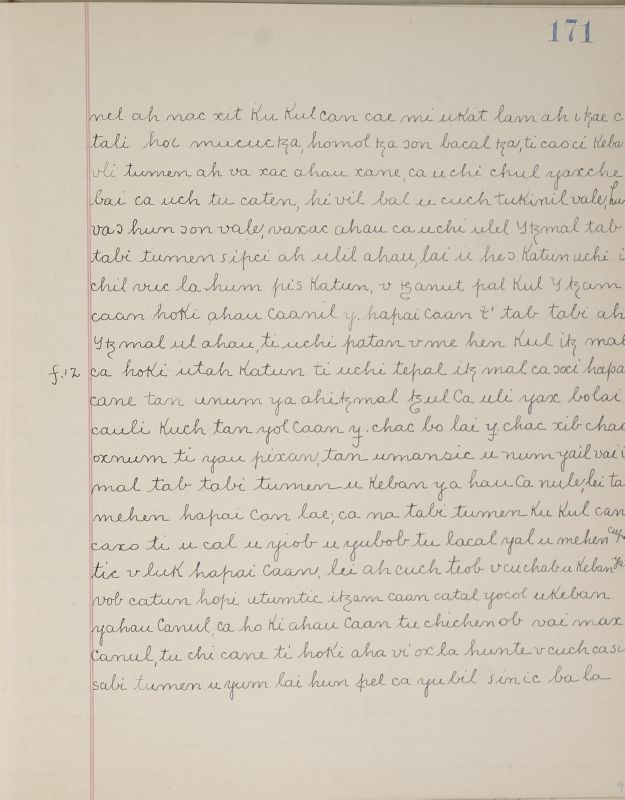 171
nel ah nac xit Ku Kul can cae mi u Kat lam ah itzae c
tali hoc mucuc tza, homol tza ɔon bacal tza, ti caoci Keba
vli tumen ah va xac ahau xane, ca uchi chul yaxche
bai ca uch tu caten, hi vil bal u cuch tukinil vale, hu
vaɔ hun ɔon vale, vaxac ahau ca uchi ulel Ytzmal tab
tabi tumen sipci ah ulil ahau, lai u heɔ Katun uchi i
chil vuc la hum pis Katun, v tzanut pal Kul Ytzam
caan hoKi ahau Caanil y. hapai Caan t' tab tabi ah
Ytzmal ul ahau, ti uchi patan v me hen Kul itz mal
f.12 ca hoKi utah Katun ti uchi tepal itz mal ca xi hapa
cane tan unum ya ahitzmal tzul Ca uli yax bolai
cauli Kuch tan yol Caan y. chac bo lai y. chac xib chac
oxnum ti yau pixan, tan umansic u num yail vai i
mal tab tabi tumen u Keban ya hau Ca nule, lei ta
mehen hapai Can lae, ca na tabi tumen Ku Kul can
caxo ti u cal u yiob u yubob tu lacal yal u mehen
tic v luk hapai Caan, lei ah cuch teob v cuchabu Keban
vob catun hopi utumtic itzam caan catal yocol uKeban
yahau Canul, ca ho Ki ahau Caan tu chichen ob vai max
Canul, tu chi cane ti hoKi aha vi ox la hunte v cuch casi
sabi tumen u yum lai hun pel ca yubil sinic ba la